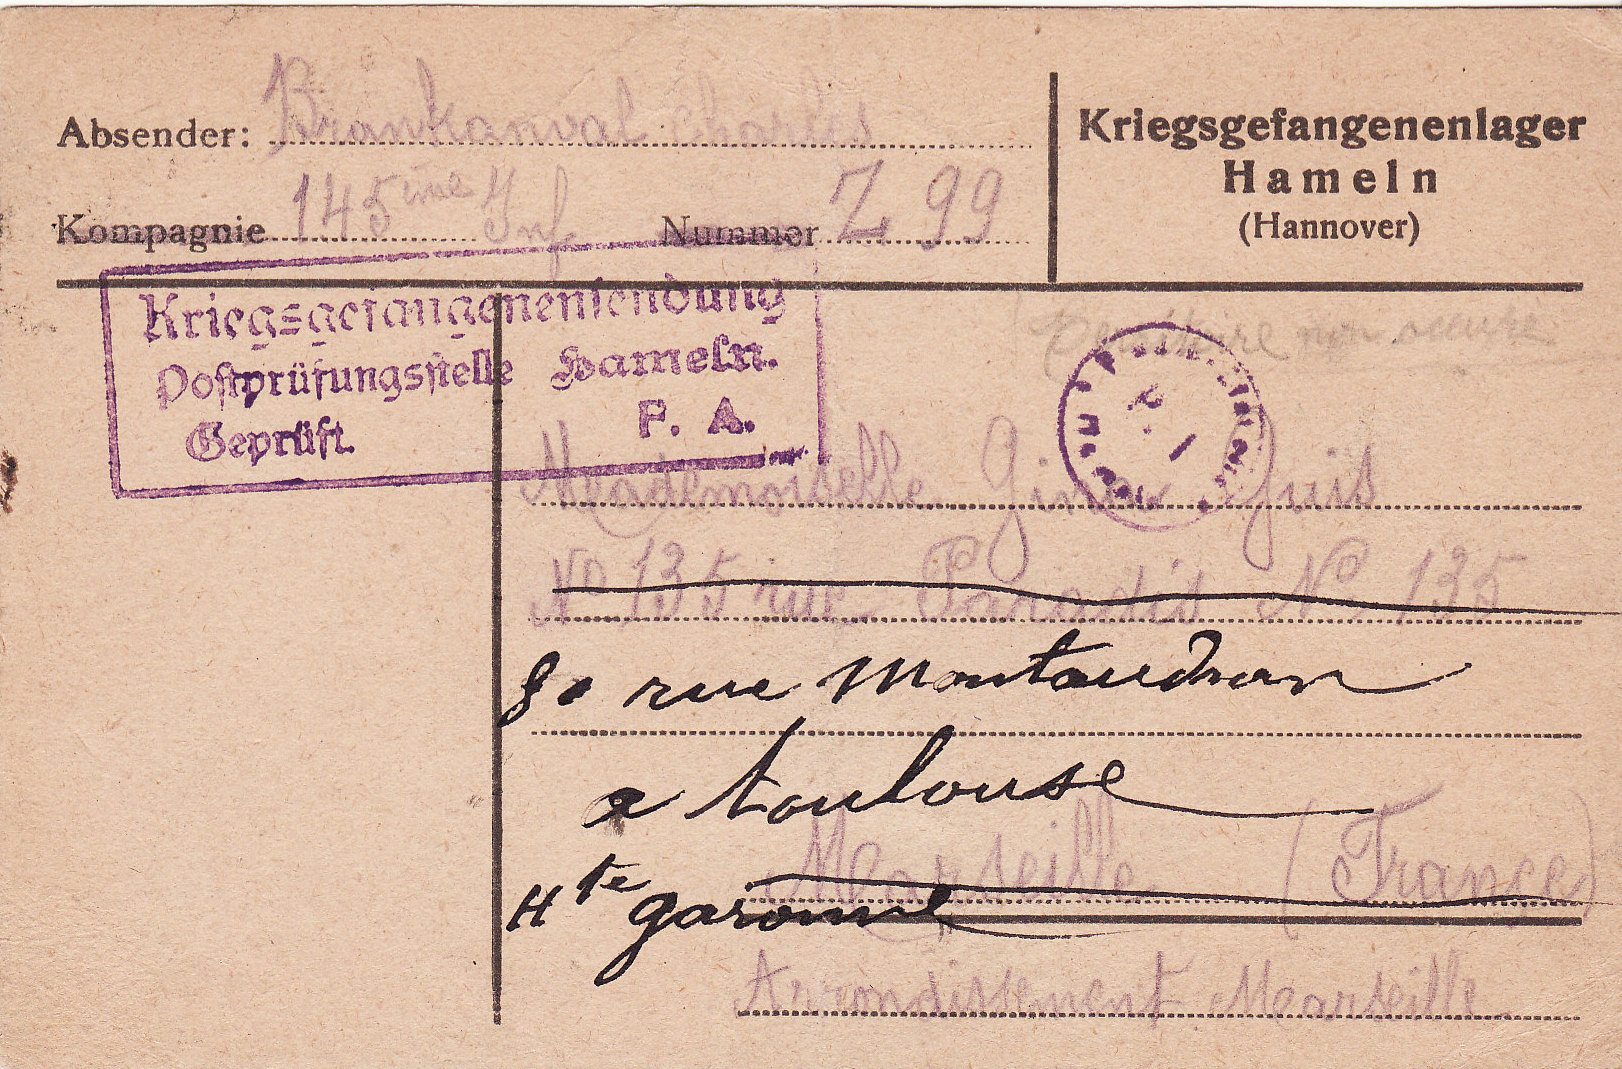 Absender: Charles
Kompagnie 145ème Inf Nummer Z 99
Kriegsgefangenenlager
Hameln
(Hannover)
Kriegsgefangenensendung
Postprüfungsstelle Hameln.
Geprüft. P. A.
Mademoiselle Gina Guis
No 135 rue Paradis No 135
rue Montaudran
a toulouse
Hte garonne
Marseille (France)
Arrondissement Marseille